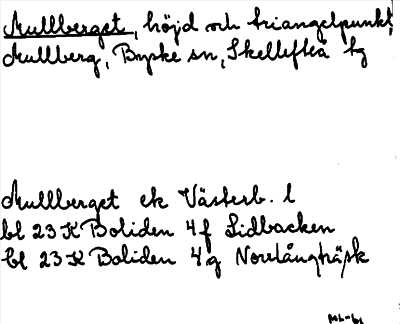 Mullberget, höjd och triangelpunkt,
Mullberg, Byske sn, Skellefteå tg
Mullberget ek Västerb. l
bl 23 K Boliden 4 f Lidbacken
bl 23 K Boliden 4 g Norrlångträsk